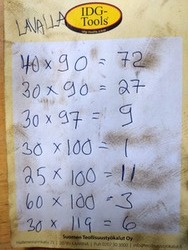 LAVALLA
IDG-
Tools®
40 x 90 = 72
30 x 90 = 27
30 x 97 = 9
30 x 100 = 1
25 x 100 = 11
60 x 100 = 3
30 x 119 = 6
Suomen Teollisuustyökalut Oy